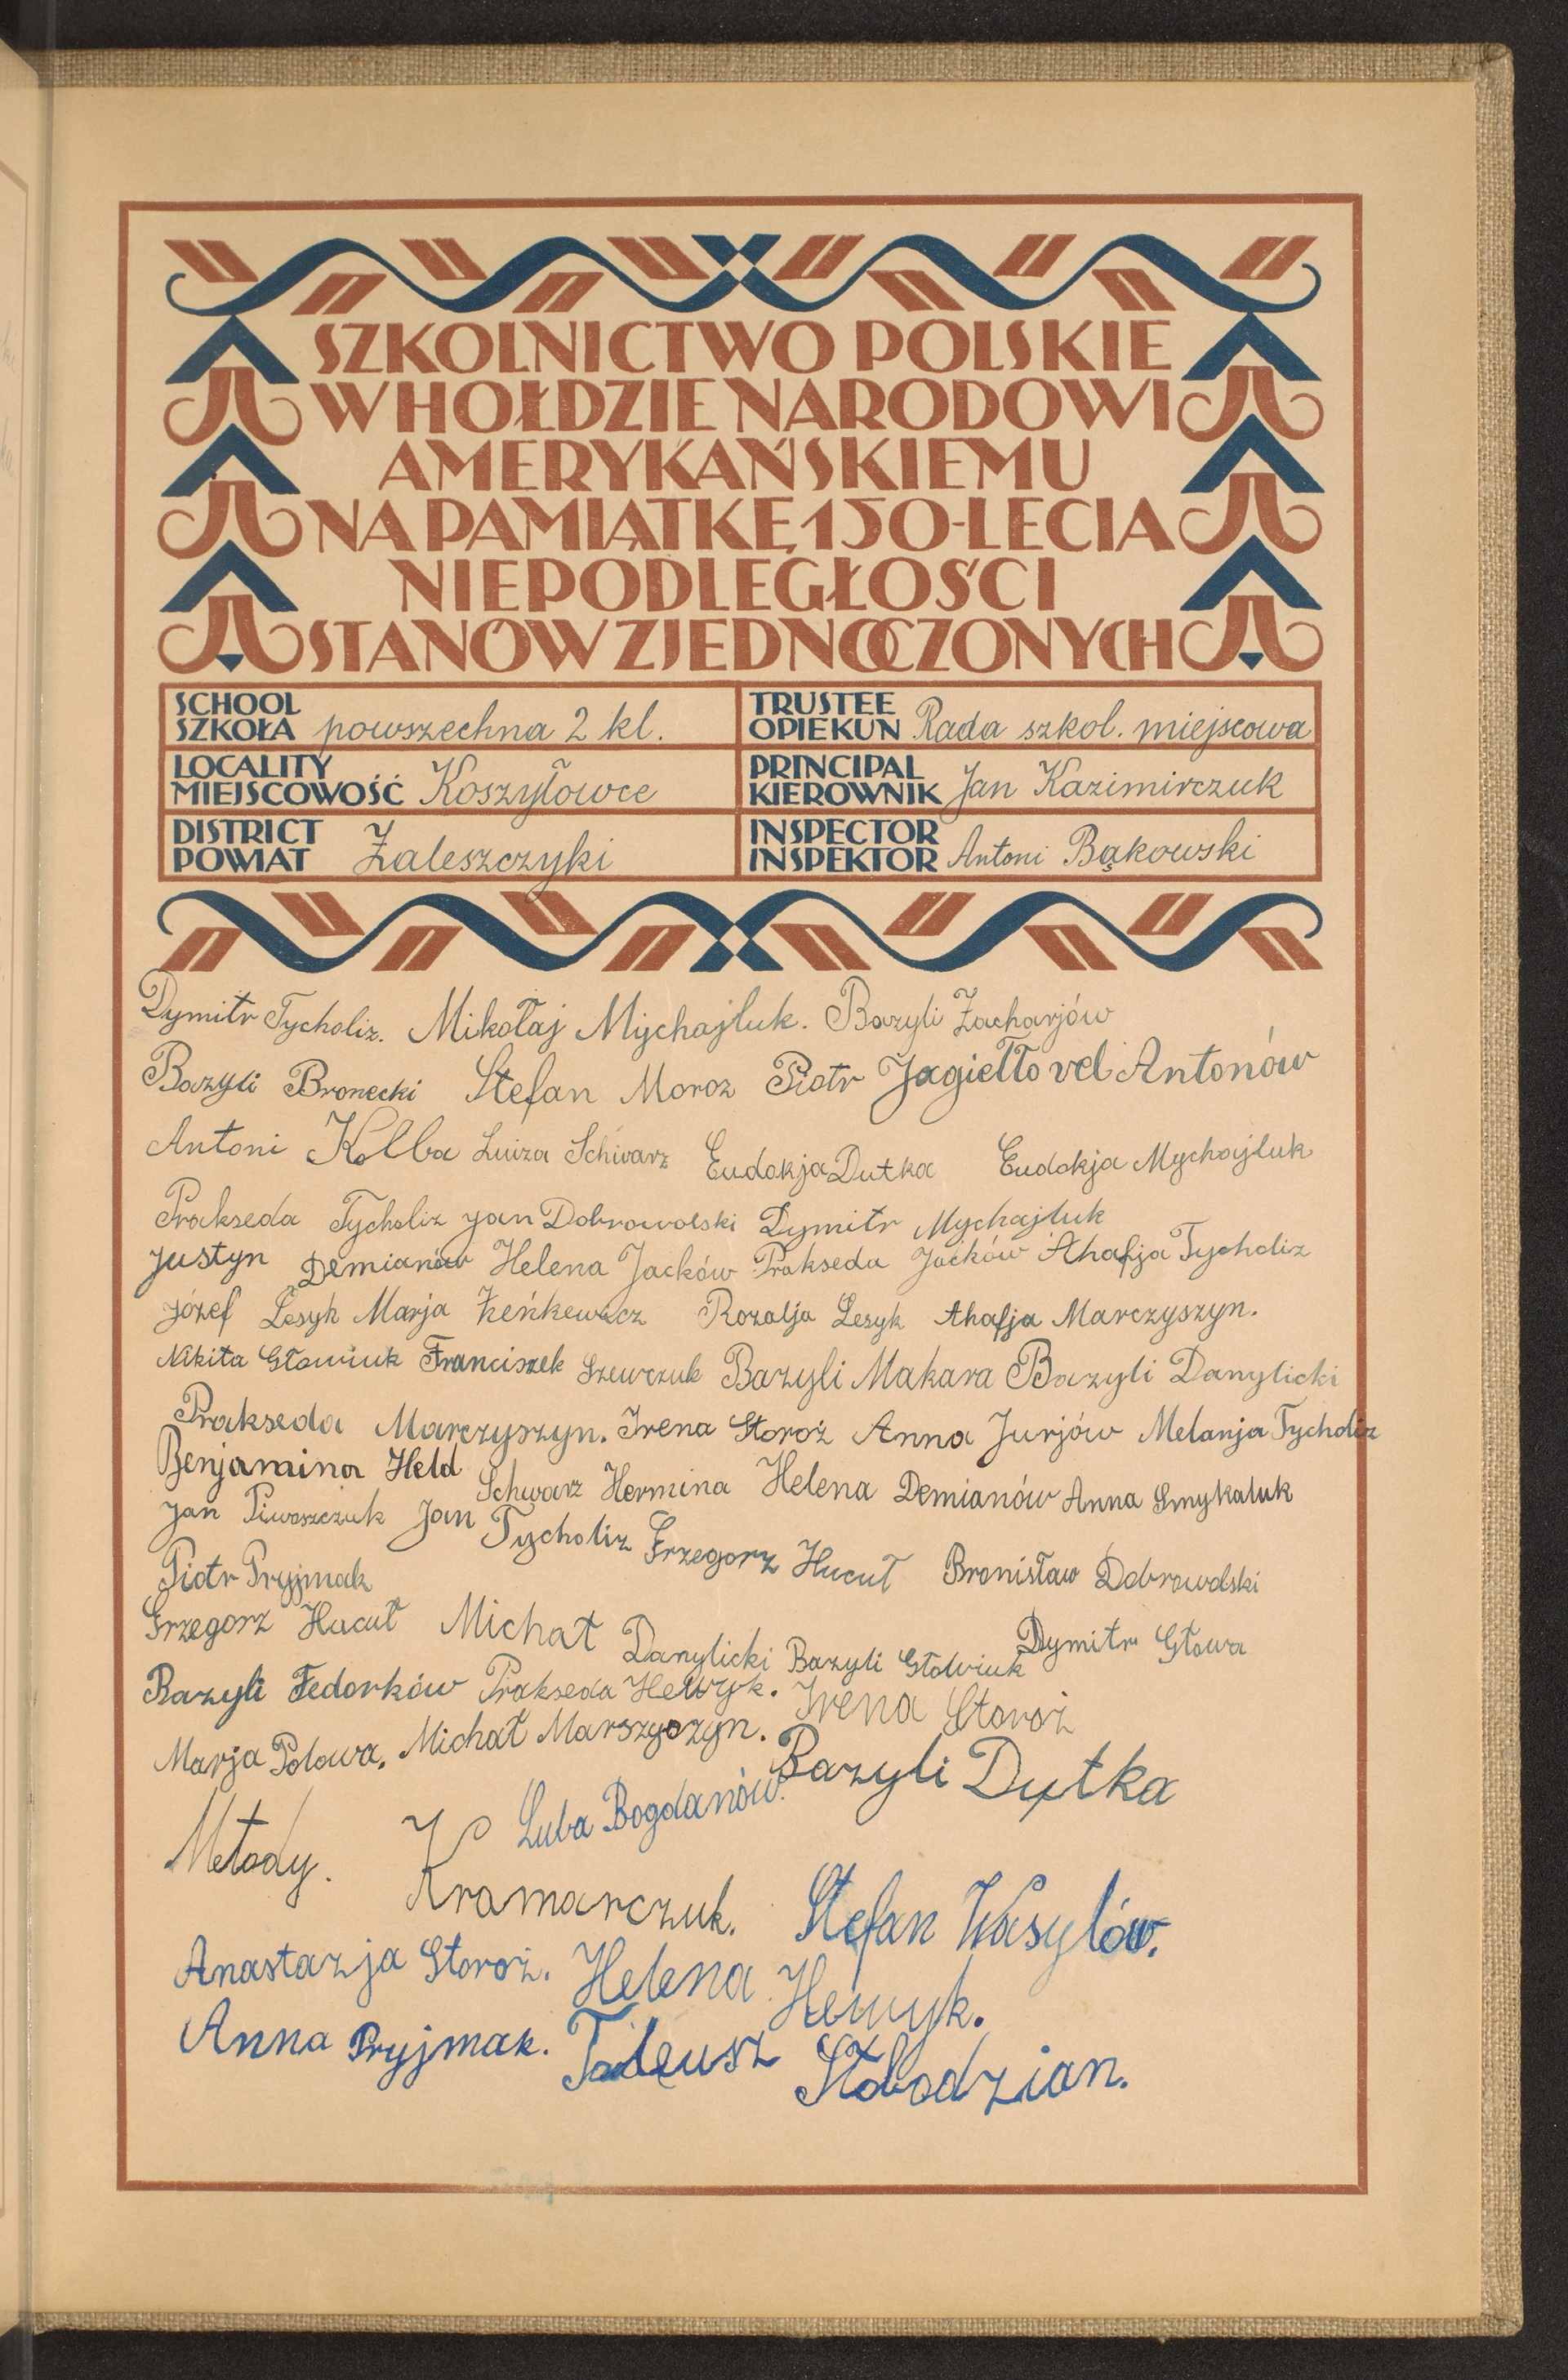 SZKOLNICTWO POLSKIE
W HOŁDZIE NARODOWI
AMERYKAŃSKIEMU
NA PAMIĄTKĘ 150-LECIA
NIEPODLEGŁOŚCI
STANÓW ZJEDNOCZONYCH
SCHOOL
SZKOŁA powszechna 2 kl.
TRUSTEE
OPIEKUN Rada szkol. miejscowa
LOCALITY
MIEJSCOWOŚĆ Koszyłowce
PRINCIPAL
KIEROWNIK Jan Kazimirczuk
DISTRICT
POWIAT Zaleszczyki
INSPECTOR
INSPEKTOR Antoni Bąkowski
Dymitr Tycholiz. Mikołaj Mychajluk. Bazyli Zacharjów
Bazyli Bronecki Stefan Moroz Piotr Jagiełło vel Antonów
Antoni Kolba Luiza Schwarz Eudokja Dutka Eudokja Mychajluk
Prakseda Tycholiz Jan Dobrowolski Dymitr Mychajluk
Justyn Demianów Helena Jacków Prakseda Jacków Ahafja Tycholiz
Józef Lesyk Marja Żeńkewicz Rozalja Lesyk Ahafja Marczyszyn.
Nikita Głowiuk Franciszek Szewczuk Bazyli Makara Bazyli Danylicki
Prakseda Marczyszyn. Irena Storoż Anna Jurjów Melanja Tycholiz
Benjamina Held Schwarz Hermina Helena Demianów Anna Smykaluk
Jan Piwoszczuk Jan Tycholiz Grzegorz Hucuł Bronisław Dobrowolski
Piotr Pryjmak
Grzegorz Hucuł Michał Danylicki Bazyli Głowiuk Dymitr Głowa
Bazyli Fedorków Prakseda Hewyk. Irena Storoż
Marja Polowa. Michał Marszyszyn. Bazyli Dutka
Metody. Kramarczuk. Luba Bogdanów.
Stefan Wasylów.
Anastazja Storoż. Helena Hewyk.
Anna Pryjmak. Tadeusz Słobodzian.